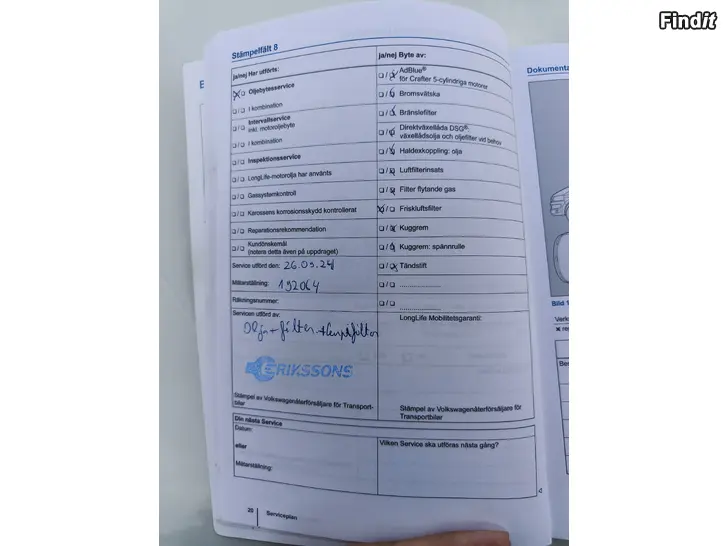 Findit
Stämpelfält 8
ja/nej Har utförts:
Oljebytesservice
I kombination
Intervallservice
inkl. motoroljebyte
I kombination
Inspektionsservice
LongLife-motorolja har använts
Gassystemkontroll
Karossens korrosionsskydd kontrollerat
Reparationsrekommendation
Kundönskemål
(notera detta även på uppdraget)
Service utförd den: 26.03.24
Mätarställning: 192064
Räkningsnummer:
Servicen utförd av:
Olja + filter +
ERIKSSONS
Stämpel av Volkswagenåterförsäljare för Transport-
bilar
ja/nej Byte av:
AdBlue®
för Crafter 5-cylindriga motorer
Bromsvätska
Bränslefilter
Direktväxellåda DSG®:
växellådsolja och oljefilter vid behov
Haldexkoppling: olja
Luftfilterinsats
Filter flytande gas
Friskluftsfilter
Kuggrem
Kuggrem: spännrulle
Tändstift
LongLife Mobilitetsgaranti:
Stämpel av Volkswagenåterförsäljare för
Transportbilar
Din nästa Service
Datum:
eller
Mätarställning:
Vilken Service ska utföras nästa gång?
20
Serviceplan
Dokumenta
Bild 1